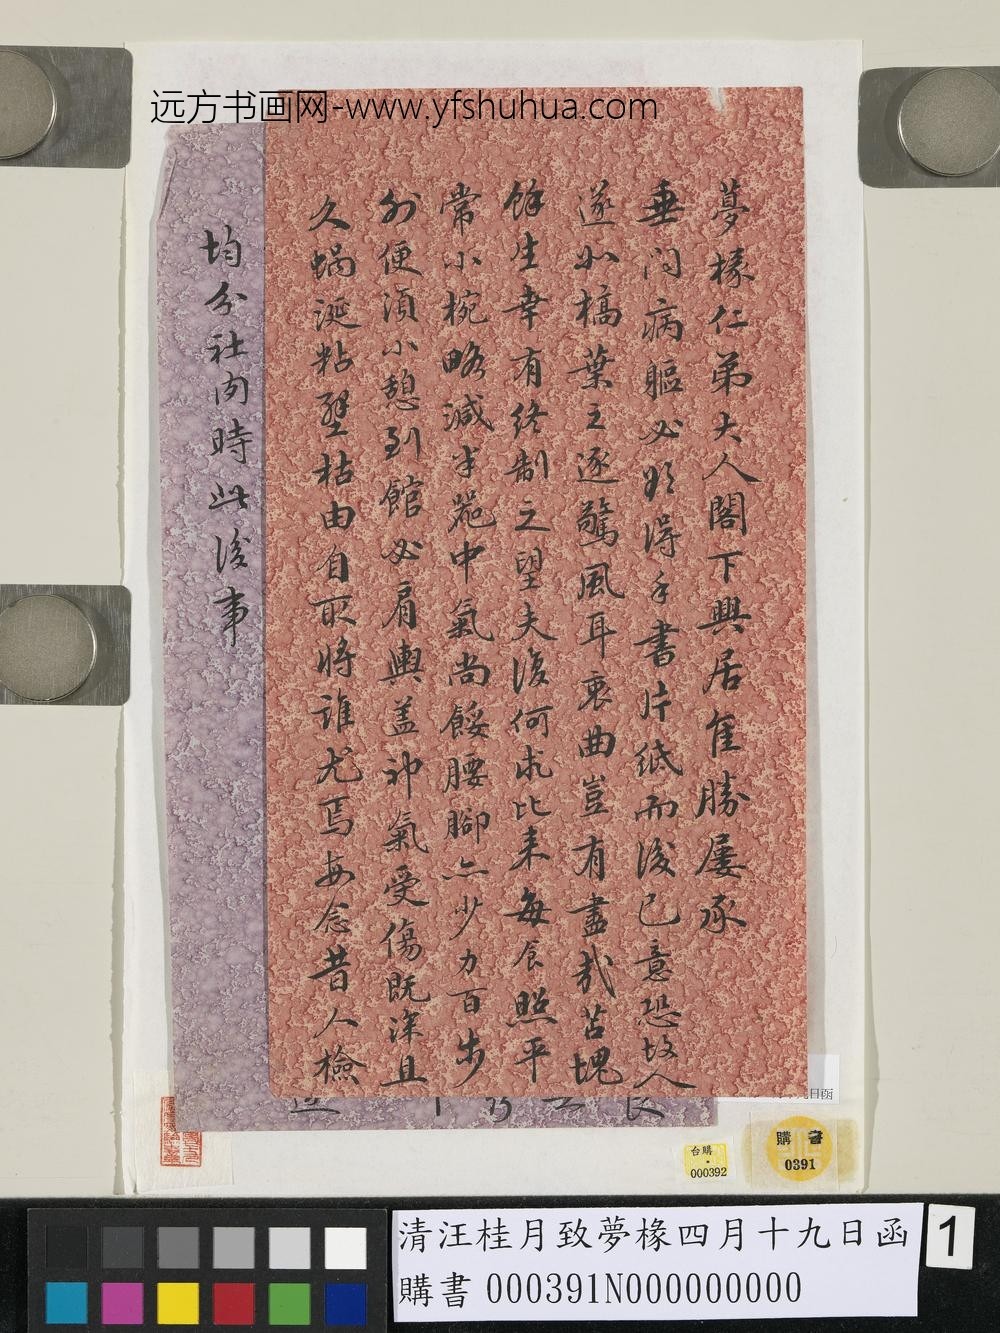 远方书画网-www.yfshuhua.com
夢椽仁弟大人閣下興居隹勝屢承
垂问病軀必欲得手書片紙而後已意恐故人
遂如槁葉之逐驚風耳衷曲豈有盡哉苫塊
餘生幸有終制之望夫復何求比来每食照平
常小椀略減半器中氣尚餒腰腳亦少力百步
外便須小憩到館必肩輿盖神氣受傷既深且
久蝸涎粘壁枯由自取將誰尤焉每念昔人檢
均分社内時此後事
日函
台購
000392
購書
0391
清汪桂月致夢椽四月十九日函
購書 000391N000000000
1